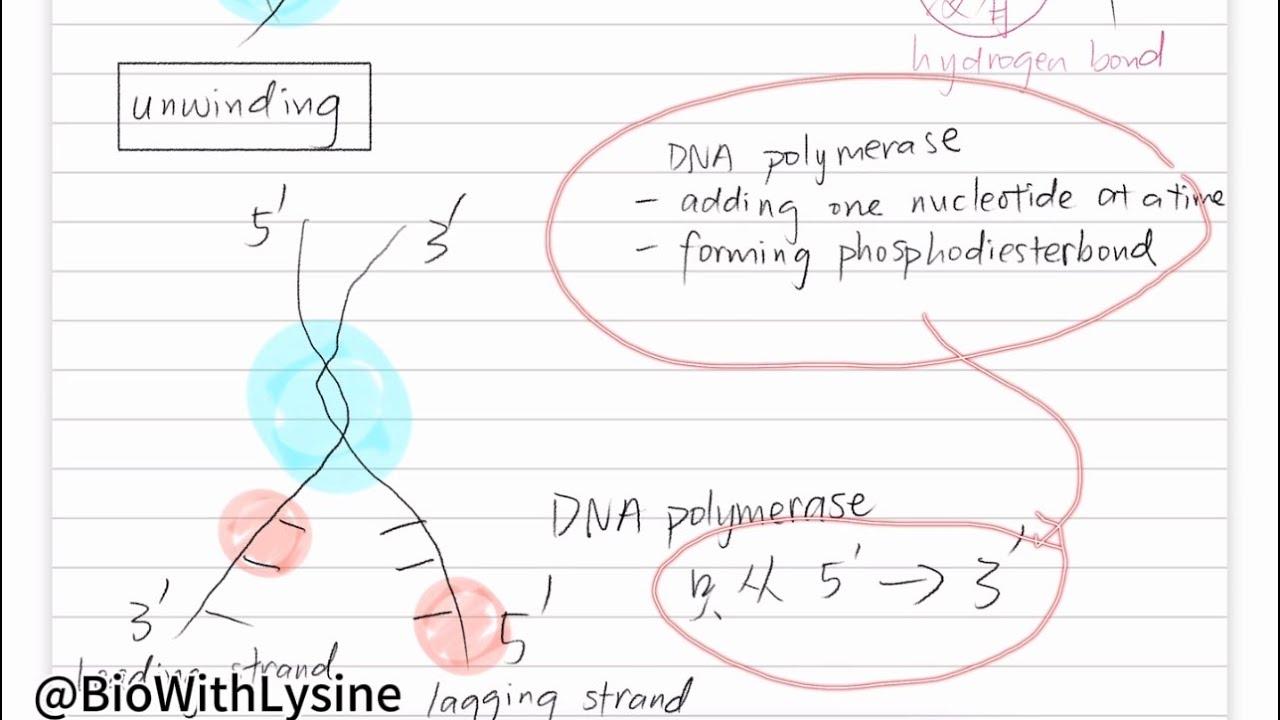 hydrogen bond
unwinding
DNA polymerase
- adding one nucleotide at a time
- forming phosphodiesterbond
5' 3'
DNA polymerase
只从 5' → 3'
3' 5'
leading strand
lagging strand
@BioWithLysine